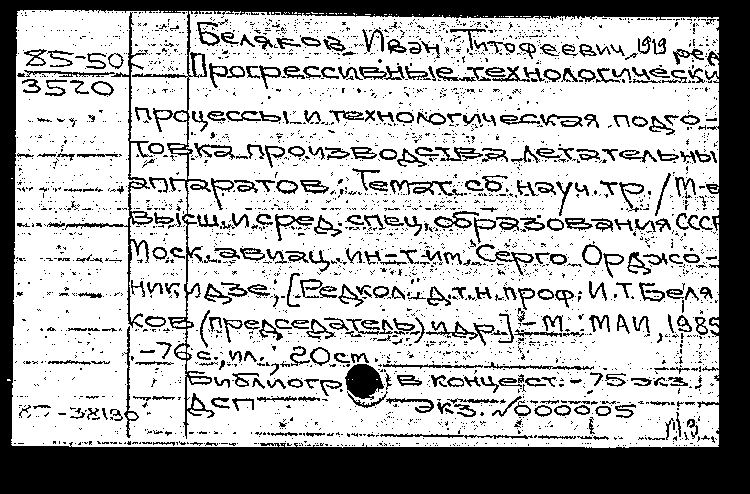 Беляков, Иван Титофеевич, 1919 ред
85-50к
Прогрессивные технологически
3520
процессы и технологическая подго-
товка производства летательны
аппаратов: Темат. сб. науч. тр. / М-в
высш. и сред. спец. образования СССР
Моск. авиац. ин-т им. Серго Орджо-
никидзе; [Редкол.: д.т.н. проф. И.Т. Беля
ков (председатель) и др.] - М.: МАИ, 1985
-76 с., ил.; 20 см
Библиогр в конце ст. - 75 экз.
ДСП экз. №000005
85-38190